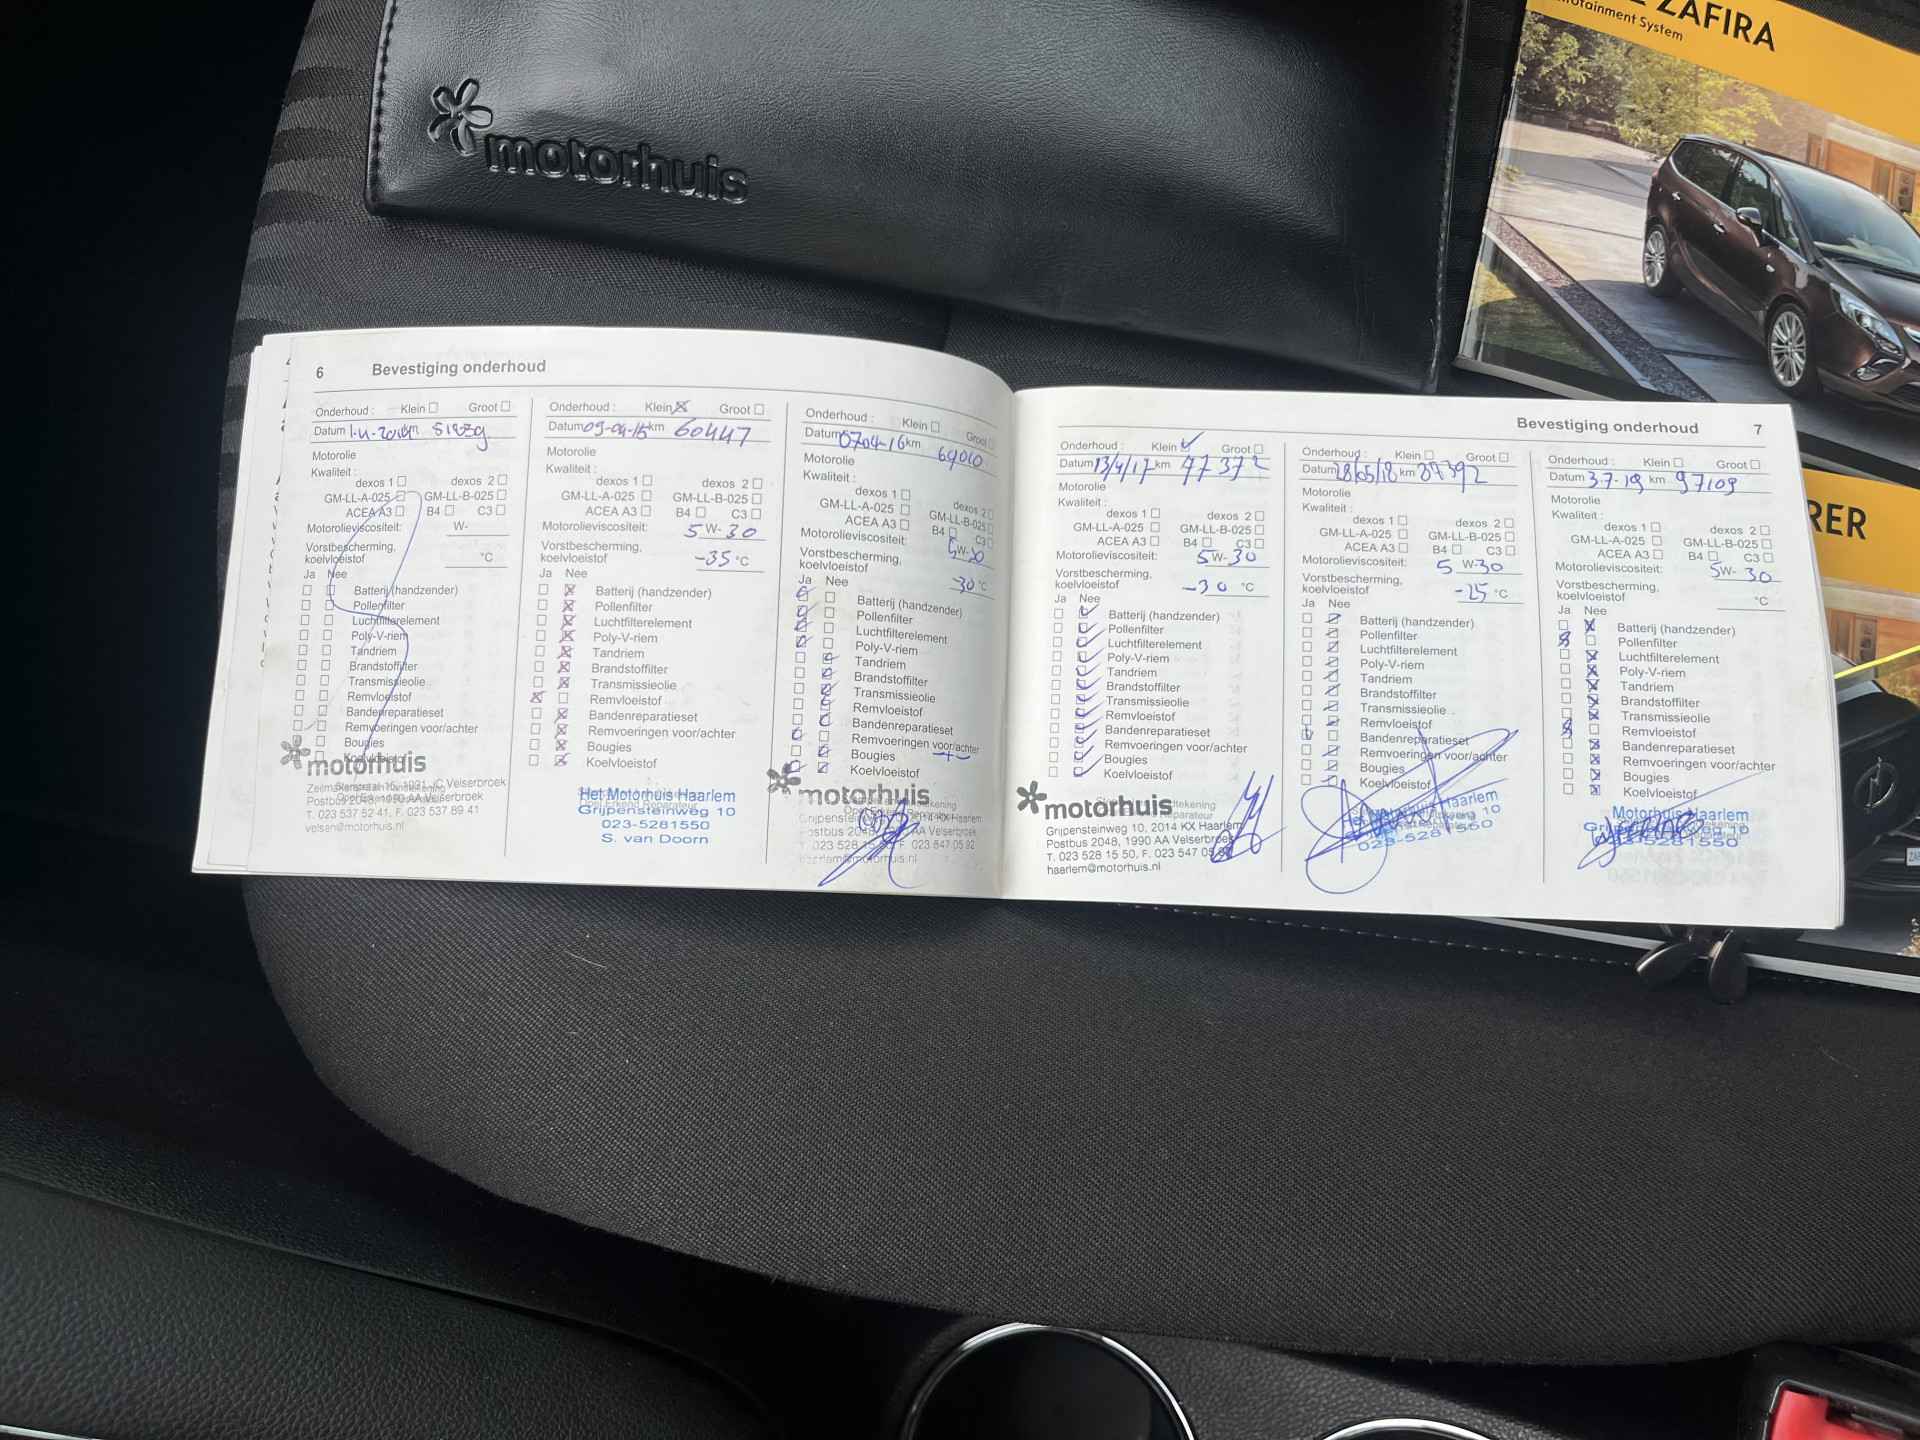 motorhuis
ZAFIRA
Infotainment System
RER
6 Bevestiging onderhoud
Onderhoud : Klein Groot
Datum km 51829
Motorolie
Kwaliteit :
dexos 1 dexos 2
GM-LL-A-025 GM-LL-B-025
ACEA A3 B4 C3
Motorolieviscositeit: W-
Vorstbescherming,
koelvloeistof °C
Ja Nee
Batterij (handzender)
Pollenfilter
Luchtfilterelement
Poly-V-riem
Tandriem
Brandstoffilter
Transmissieolie
Remvloeistof
Bandenreparatieset
Remvoeringen voor/achter
Bougies
Koelvloeistof
motorhuis
Postbus 2048, 1990 AA Velserbroek
T. 023 537 52 41, F. 023 537 89 41
velsen@motorhuis.nl
Onderhoud : Klein Groot
Datum 09-04-15 km 60447
Motorolie
Kwaliteit :
dexos 1 dexos 2
GM-LL-A-025 GM-LL-B-025
ACEA A3 B4 C3
Motorolieviscositeit: 5 W- 30
Vorstbescherming,
koelvloeistof -35 °C
Ja Nee
Batterij (handzender)
Pollenfilter
Luchtfilterelement
Poly-V-riem
Tandriem
Brandstoffilter
Transmissieolie
Remvloeistof
Bandenreparatieset
Remvoeringen voor/achter
Bougies
Koelvloeistof
Het Motorhuis Haarlem
Grijpensteinweg 10
023-5281550
S. van Doorn
Onderhoud : Klein Groot
Datum 0704-16 km 69010
Motorolie
Kwaliteit :
dexos 1 dexos 2
GM-LL-A-025 GM-LL-B-025
ACEA A3 B4 C3
Motorolieviscositeit: 5 W- 30
Vorstbescherming,
koelvloeistof -30 °C
Ja Nee
Batterij (handzender)
Pollenfilter
Luchtfilterelement
Poly-V-riem
Tandriem
Brandstoffilter
Transmissieolie
Remvloeistof
Bandenreparatieset
Remvoeringen voor/achter
Bougies
Koelvloeistof
motorhuis
haarlem@motorhuis.nl
Bevestiging onderhoud 7
Onderhoud : Klein Groot
Datum 13/4/17 km 77372
Motorolie
Kwaliteit :
dexos 1 dexos 2
GM-LL-A-025 GM-LL-B-025
ACEA A3 B4 C3
Motorolieviscositeit: 5 W- 30
Vorstbescherming,
koelvloeistof -30 °C
Ja Nee
Batterij (handzender)
Pollenfilter
Luchtfilterelement
Poly-V-riem
Tandriem
Brandstoffilter
Transmissieolie
Remvloeistof
Bandenreparatieset
Remvoeringen voor/achter
Bougies
Koelvloeistof
motorhuis
Grijpensteinweg 10, 2014 KX Haarlem
Postbus 2048, 1990 AA Velserbroek
T. 023 528 15 50, F. 023 547 05 92
haarlem@motorhuis.nl
Onderhoud : Klein Groot
Datum 28/05/18 km 87392
Motorolie
Kwaliteit :
dexos 1 dexos 2
GM-LL-A-025 GM-LL-B-025
ACEA A3 B4 C3
Motorolieviscositeit: 5 W- 30
Vorstbescherming,
koelvloeistof -25 °C
Ja Nee
Batterij (handzender)
Pollenfilter
Luchtfilterelement
Poly-V-riem
Tandriem
Brandstoffilter
Transmissieolie
Remvloeistof
Bandenreparatieset
Remvoeringen voor/achter
Bougies
Koelvloeistof
Het Motorhuis Haarlem
Grijpensteinweg 10
023-5281550
Onderhoud : Klein Groot
Datum 3-7-19 km 97109
Motorolie
Kwaliteit :
dexos 1 dexos 2
GM-LL-A-025 GM-LL-B-025
ACEA A3 B4 C3
Motorolieviscositeit: 5 W- 30
Vorstbescherming,
koelvloeistof °C
Ja Nee
Batterij (handzender)
Pollenfilter
Luchtfilterelement
Poly-V-riem
Tandriem
Brandstoffilter
Transmissieolie
Remvloeistof
Bandenreparatieset
Remvoeringen voor/achter
Bougies
Koelvloeistof
Motorhuis Haarlem
Grijpensteinweg 10
023-5281550